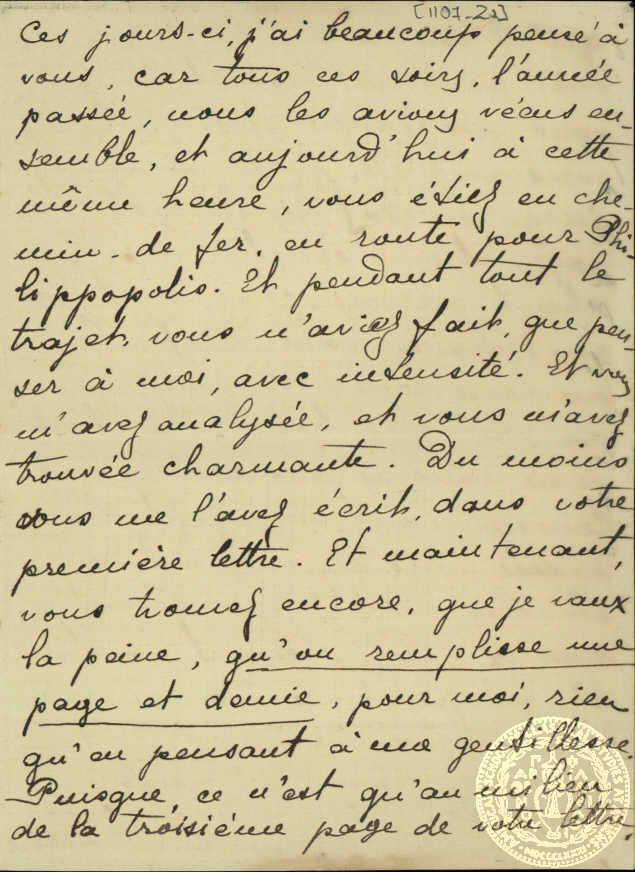 [1107-2α]
Ces jours-ci, j'ai beaucoup pensé à
vous, car tous ces soirs, l'année
passée, nous les avions vécus en-
semble, et aujourd'hui à cette
même heure, vous étiez en che-
min-de fer, en route pour Phi-
lippopolis. Et pendant tout le
trajet, vous n'aviez fait, que pen-
ser à moi, avec intensité. Et vous
m'avez analysée, et vous m'avez
trouvée charmante. Du moins
vous me l'avez écrit, dans votre
première lettre. Et maintenant,
vous trouvez encore, que je vaux
la peine, qu'on remplisse une
page et demie, pour moi, rien
qu'en pensant à ma gentillesse.
Puisque, ce n'est qu'au milieu
de la troisième page de votre lettre,